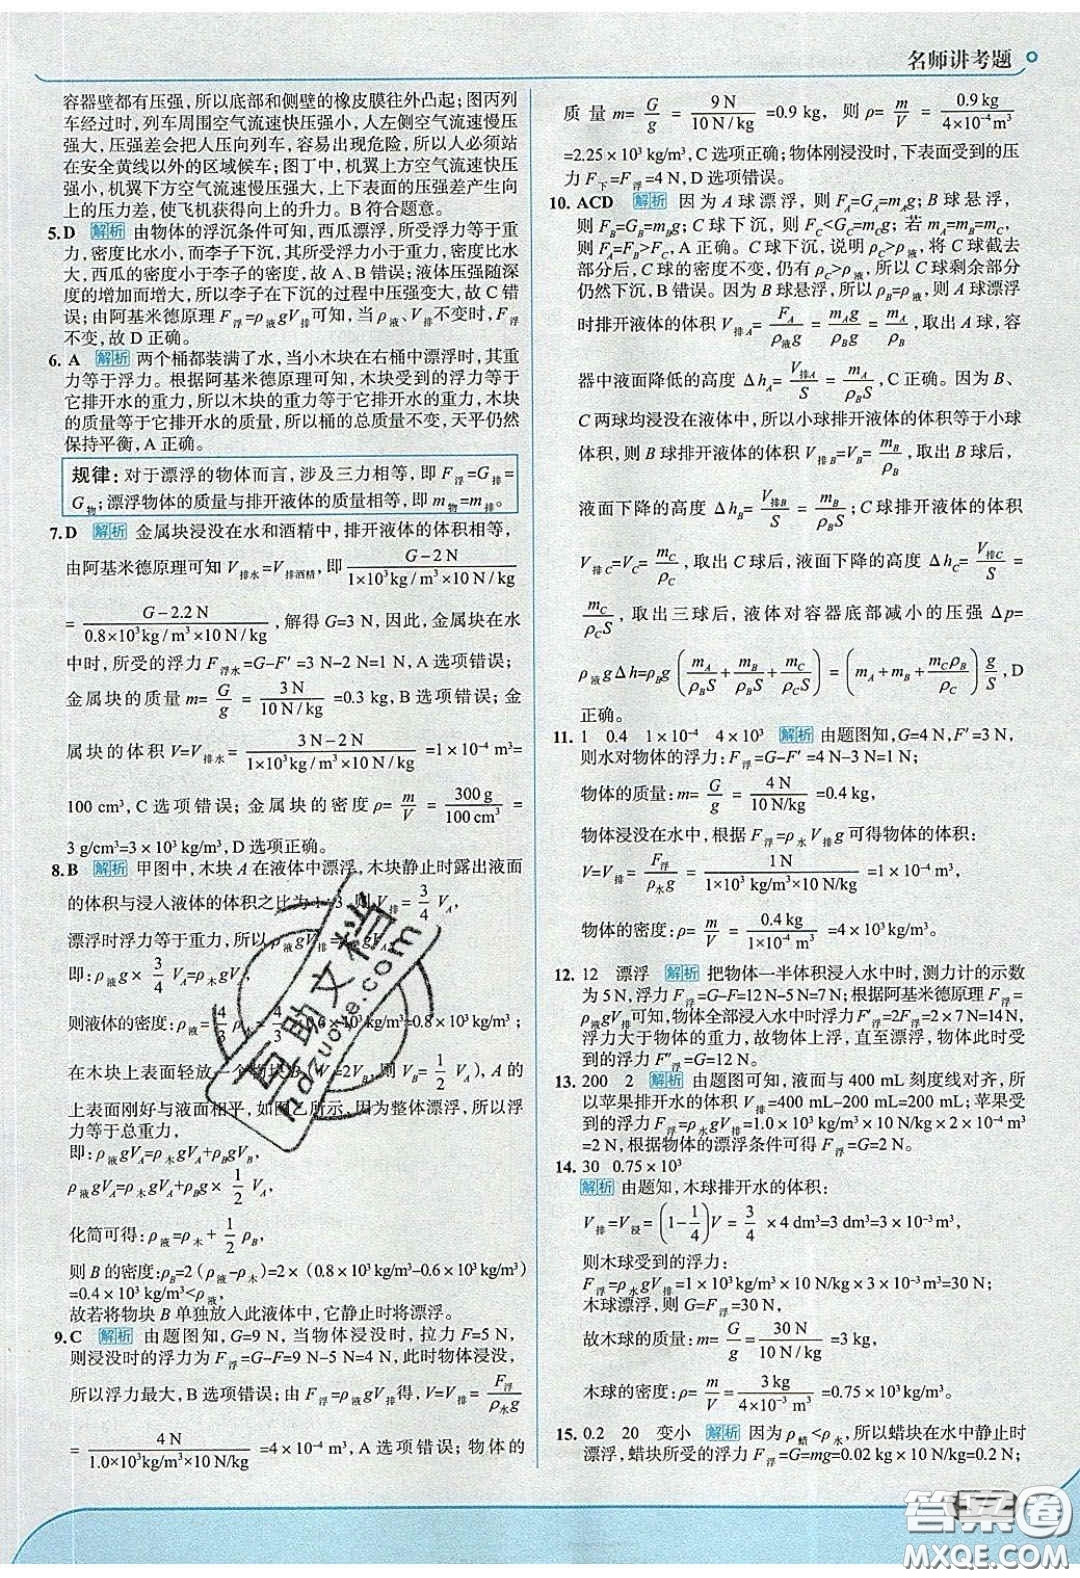 名师讲考题
容器壁都有压强，所以底部和侧壁的橡皮膜往外凸起；图丙列
车经过时，列车周围空气流速快压强小，人左侧空气流速慢压
强大，压强差会把人压向列车，容易出现危险，所以人必须站
在安全黄线以外的区域候车；图丁中，机翼上方空气流速快压
强小，机翼下方空气流速慢压强大，上下表面的压强差产生向
上的压力差，使飞机获得向上的升力。B符合题意。
5. D 解析 由物体的浮沉条件可知，西瓜漂浮，所受浮力等于重
力，密度比水小，而李子下沉，其所受浮力小于重力，密度比水
大，西瓜的密度小于李子的密度，故A、B错误；液体压强随深
度的增加而增大，所以李子在下沉的过程中压强变大，故C错
误；由阿基米德原理F浮=ρ液gV排可知，当ρ液、V排不变时，F浮
不变，故D正确。
6. A 解析 两个桶都装满了水，当小木块在右桶中漂浮时，其重
力等于浮力。根据阿基米德原理可知，木块受到的浮力等于
它排开水的重力，所以木块的重力等于它排开水的重力，木块
的质量等于它排开水的质量，所以桶的总质量不变，天平仍然
保持平衡，A正确。
规律：对于漂浮的物体而言，涉及三力相等，即F浮=G排=
G物；漂浮物体的质量与排开液体的质量相等，即m物=m排。
7. D 解析 金属块浸没在水和酒精中，排开液体的体积相等，
由阿基米德原理可知V排水=V排酒精，即(G-2 N)/(1×10³kg/m³×10 N/kg)
=(G-2.2 N)/(0.8×10³kg/m³×10 N/kg)，解得G=3 N，因此，金属块在水
中时，所受的浮力F浮水=G-F′=3 N-2 N=1 N，A选项错误；
金属块的质量m=G/g=3 N/(10 N/kg)=0.3 kg，B选项错误；金
属块的体积V=V排水=(3 N-2 N)/(1×10³kg/m³×10 N/kg)=1×10⁻⁴ m³=
100 cm³，C选项错误；金属块的密度ρ=m/V=300 g/100 cm³=
3 g/cm³=3×10³ kg/m³，D选项正确。
8. B 解析 甲图中，木块A在液体中漂浮，木块静止时露出液面
的体积与浸入液体的体积之比为1∶3，则V排=3/4 V_A，
漂浮时浮力等于重力，所以ρ液gV排=
即：ρ液g×3/4 V_A=ρ木gV_A
则液体的密度：ρ液=4/3 ρ木=4/3×0.6×10³kg/m³=0.8×10³kg/m³；
在木块上表面轻放一个物块B(V_A=2V_B，则V_B=1/2 V_A)，A的
上表面刚好与液面相平，如图乙所示，因为整体漂浮，所以浮
力等于总重力，
即：ρ液gV_A=ρ木gV_A+ρ_BgV_B
ρ液gV_A=ρ木gV_A+ρ_Bg×1/2 V_A
化简可得：ρ液=ρ木+1/2 ρ_B，
则B的密度：ρ_B=2(ρ液-ρ木)=2×(0.8×10³kg/m³-0.6×10³kg/m³)
=0.4×10³ kg/m³<ρ液，
故若将物块B单独放入此液体中，它静止时将漂浮。
9. C 解析 由题图知，G=9 N，当物体浸没时，拉力F=5 N，
则浸没时的浮力为F浮=G-F=9 N-5 N=4 N，此时物体浸没，
所以浮力最大，B选项错误；由F浮=ρ液gV排得，V=F浮/(ρ水g)
=4 N/(1.0×10³kg/m³×10 N/kg)=4×10⁻⁴ m³，A选项错误；物体的
质量m=G/g=9 N/(10 N/kg)=0.9 kg，则ρ=m/V=0.9 kg/(4×10⁻⁴ m³)
=2.25×10³ kg/m³，C选项正确；物体刚浸没时，下表面受到的压
力F下=F浮=4 N，D选项错误。
10. ACD 解析 因为A球漂浮，则F_A=G_A=m_Ag；B球悬浮，
则F_B=G_B=m_Bg；C球下沉，则F_C<G_C=m_Cg；若m_A=m_B=m_C，
则F_A=F_B>F_C，A正确。C球下沉，说明ρ_C>ρ液，将C球截去
部分后，C球的密度不变，仍有ρ_C>ρ液，所以C球剩余部分
仍然下沉，B错误。因为B球悬浮，所以ρ_B=ρ液，则A球漂浮
时排开液体的体积V排A=F_A/(ρ液g)=m_Ag/(ρ_Bg)=m_A/ρ_B，取出A球，容
器中液面降低的高度Δh_A=V排A/S=m_A/(ρ_BS)，C正确。因为B、
C两球均浸没在液体中，所以小球排开液体的体积等于小球
体积，则B球排开液体的体积V排B=V_B=m_B/ρ_B，取出B球后，
液面下降的高度Δh_B=V排B/S=m_B/(ρ_BS)；C球排开液体的体积
V排C=V_C=m_C/ρ_C，取出C球后，液面下降的高度Δh_C=V排C/S=
m_C/(ρ_CS)，取出三球后，液体对容器底部减小的压强Δp=
ρ液gΔh=ρ_Bg(m_A/(ρ_BS)+m_B/(ρ_BS)+m_C/(ρ_CS))=(m_A+m_B+m_Cρ_B/ρ_C)g/S，D
正确。
11. 1 0.4 1×10⁻⁴ 4×10³ 解析 由题图知，G=4 N，F′=3 N，
则水对物体的浮力：F浮=G-F′=4 N-3 N=1 N；
物体的质量：m=G/g=4 N/(10 N/kg)=0.4 kg，
物体浸没在水中，根据F浮=ρ水V排g可得物体的体积：
V=V排=F浮/(ρ水g)=1 N/(1×10³kg/m³×10 N/kg)=1×10⁻⁴ m³，
物体的密度：ρ=m/V=0.4 kg/(1×10⁻⁴ m³)=4×10³ kg/m³。
12. 12 漂浮 解析 把物体一半体积浸入水中时，测力计的示数
为5 N，浮力F浮=G-F=12 N-5 N=7 N；根据阿基米德原理F浮=
ρ液gV排可知，物体全部浸入水中时浮力F′浮=2F浮=2×7 N=14 N，
浮力大于物体的重力，故物体上浮，直至漂浮，物体此时受
到的浮力F″浮=G=12 N。
13. 200 2 解析 由题图可知，液面与400 mL刻度线对齐，所
以苹果排开水的体积V排=400 mL-200 mL=200 mL；苹果受
到的浮力F浮=ρ水gV排=1.0×10³ kg/m³×10 N/kg×2×10⁻⁴ m³
=2 N，根据物体的漂浮条件可得F浮=G=2 N。
14. 30 0.75×10³
解析 由题知，木球排开水的体积：
V排=V浸=(1-1/4)V=3/4×4 dm³=3 dm³=3×10⁻³ m³，
则木球受到的浮力：
F浮=ρ水gV排=1×10³ kg/m³×10 N/kg×3×10⁻³ m³=30 N；
木球漂浮，则G=F浮=30 N，
故木球的质量：m=G/g=30 N/(10 N/kg)=3 kg，
木球的密度：ρ=m/V=3 kg/(4×10⁻³ m³)=0.75×10³ kg/m³。
15. 0.2 20 变小 解析 因为ρ蜡<ρ水，所以蜡块在水中静止时
漂浮，蜡块所受的浮力F浮=G=mg=0.02 kg×10 N/kg=0.2 N；
互助文档
hdzuoye.com
答案圈
MXQE.COM